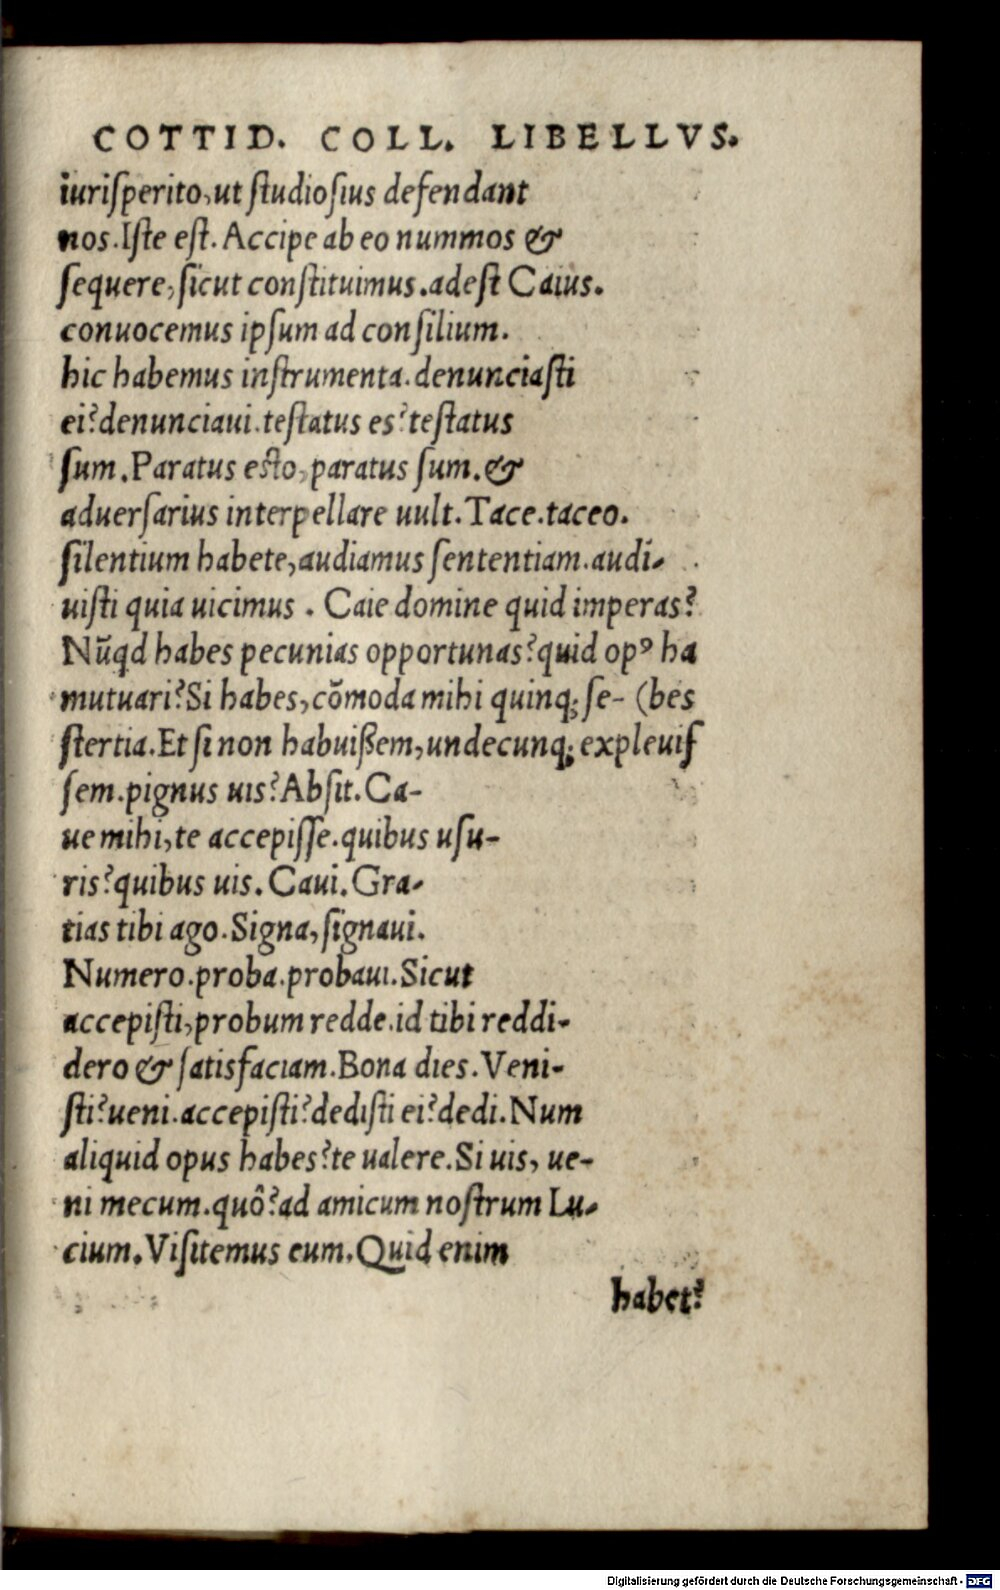 COTTID. COLL. LIBELLVS.
iuriſperito, ut ſtudioſius defendant
nos. Iſte eſt. Accipe ab eo nummos &
ſequere, ſicut conſtituimus. adeſt Caius.
conuocemus ipſum ad conſilium.
hic habemus inſtrumenta. denunciaſti
ei? denunciaui. teſtatus es? teſtatus
ſum. Paratus eſto, paratus ſum. &
aduerſarius interpellare uult. Tace. taceo.
ſilentium habete, audiamus ſententiam. audi-
uiſti quia uicimus. Caie domine quid imperas?
Nũqd habes pecunias opportunas? quid opꝰ ha
mutuari? Si habes, cõmoda mihi quinq; ſe- (bes
ſtertia. Et ſi non habuißem, undecunq; expleuiſ
ſem. pignus uis? Abſit. Ca-
ue mihi, te accepiſſe. quibus uſu-
ris? quibus uis. Caui. Gra-
tias tibi ago. Signa, ſignaui.
Numero. proba. probaui. Sicut
accepiſti, probum redde. id tibi reddi-
dero & ſatisfaciam. Bona dies. Veni-
ſti? ueni. accepiſti? dediſti ei? dedi. Num
aliquid opus habes? te ualere. Si uis, ue-
ni mecum. quô? ad amicum noſtrum Lu-
cium. Viſitemus eum. Quid enim
habet?
Digitalisierung gefördert durch die Deutsche Forschungsgemeinschaft - DFG